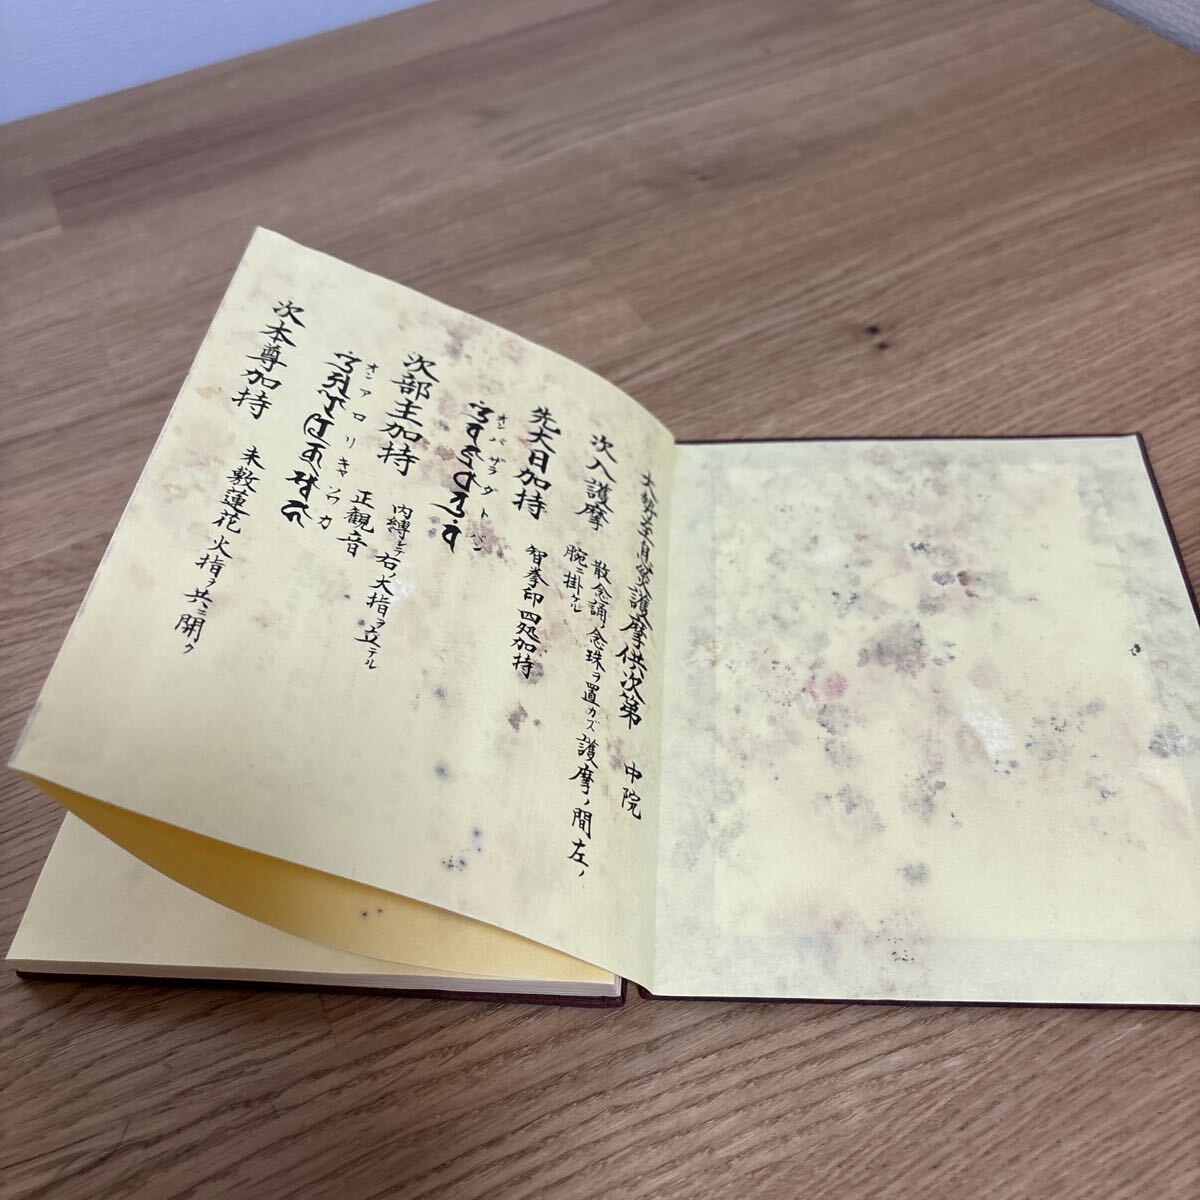 護摩供次第 中院
次入護摩 散念誦ノ念珠ヲ置カズ護摩ノ間左ノ
腕ニ掛ケル
先大日加持 智拳印四処加持
オン バ ザラ ダ ト バン
次部主加持 内縛シテ右ノ大指ヲ立テル
正観音
オン ア ロ リ キャ ソワ カ
次本尊加持 未敷蓮花火指ヲ共ニ開ク